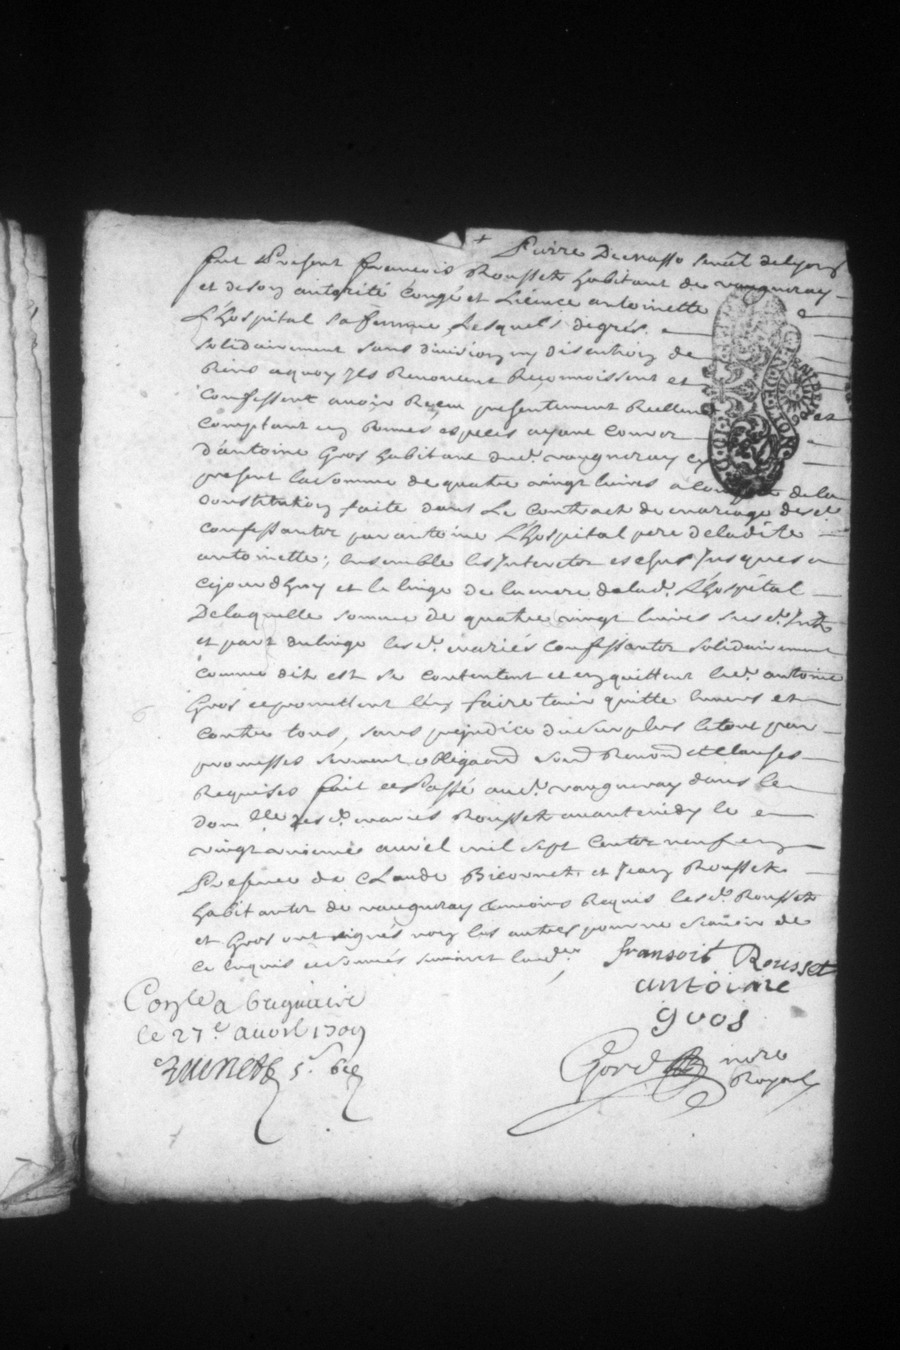 + Pierre Dumasso senêl delyons
fut Present francois Rousset habitant de vaugneray
et deson autorité congé et Licence antoinette
L'hospital sa femme Lesquels degrés
solidairement sans division ny discution de
Biens aquoy Ils Renoncent Reconnoissent et
Confessent avoir Receu presentement Reellem
Comptant en bonnes especes ayant Cours
d'antoine Gros habitant dud. vaugneray
present lasomme de quatre vingt livres a de la
Constitution faite dans Le Contract de mariage desd
Confessantz par antoine L'hospital pere deladite
antoinette; Ensemble les Interetz escheus Jusques a
cejourdhuy et le linge de la mere delad. L'hospital
Delaquelle somme de quatre vingt livres susd. Intz
et part du linge lesd. mariés Confessantz solidairement
Comme dit est se contentent et en quittent led. antoine
Gros et promettent l'en faire tenir quitte Envers et
Contre tous, sans prejudice du surplus le tout par
promesses serment obligaon Renonon et Clauses
Requises fait et Passé aud. vaugneray dans le
domlle desd. mariés Rousset avant midy le
vingt avril mil sept Centz neuf en
Presence de Claude Biconnet et Jean Rousset
habitantz de vaugneray temoins Requis lesd. Rousset
et Gros ont signés non les autres pour ne scavoir de
ce enquis et sommés suivant l'ord.ce
fransois Rousset
antoine
gros
Conlle a Grignieu
le 27e avril 1709
nore
Royal